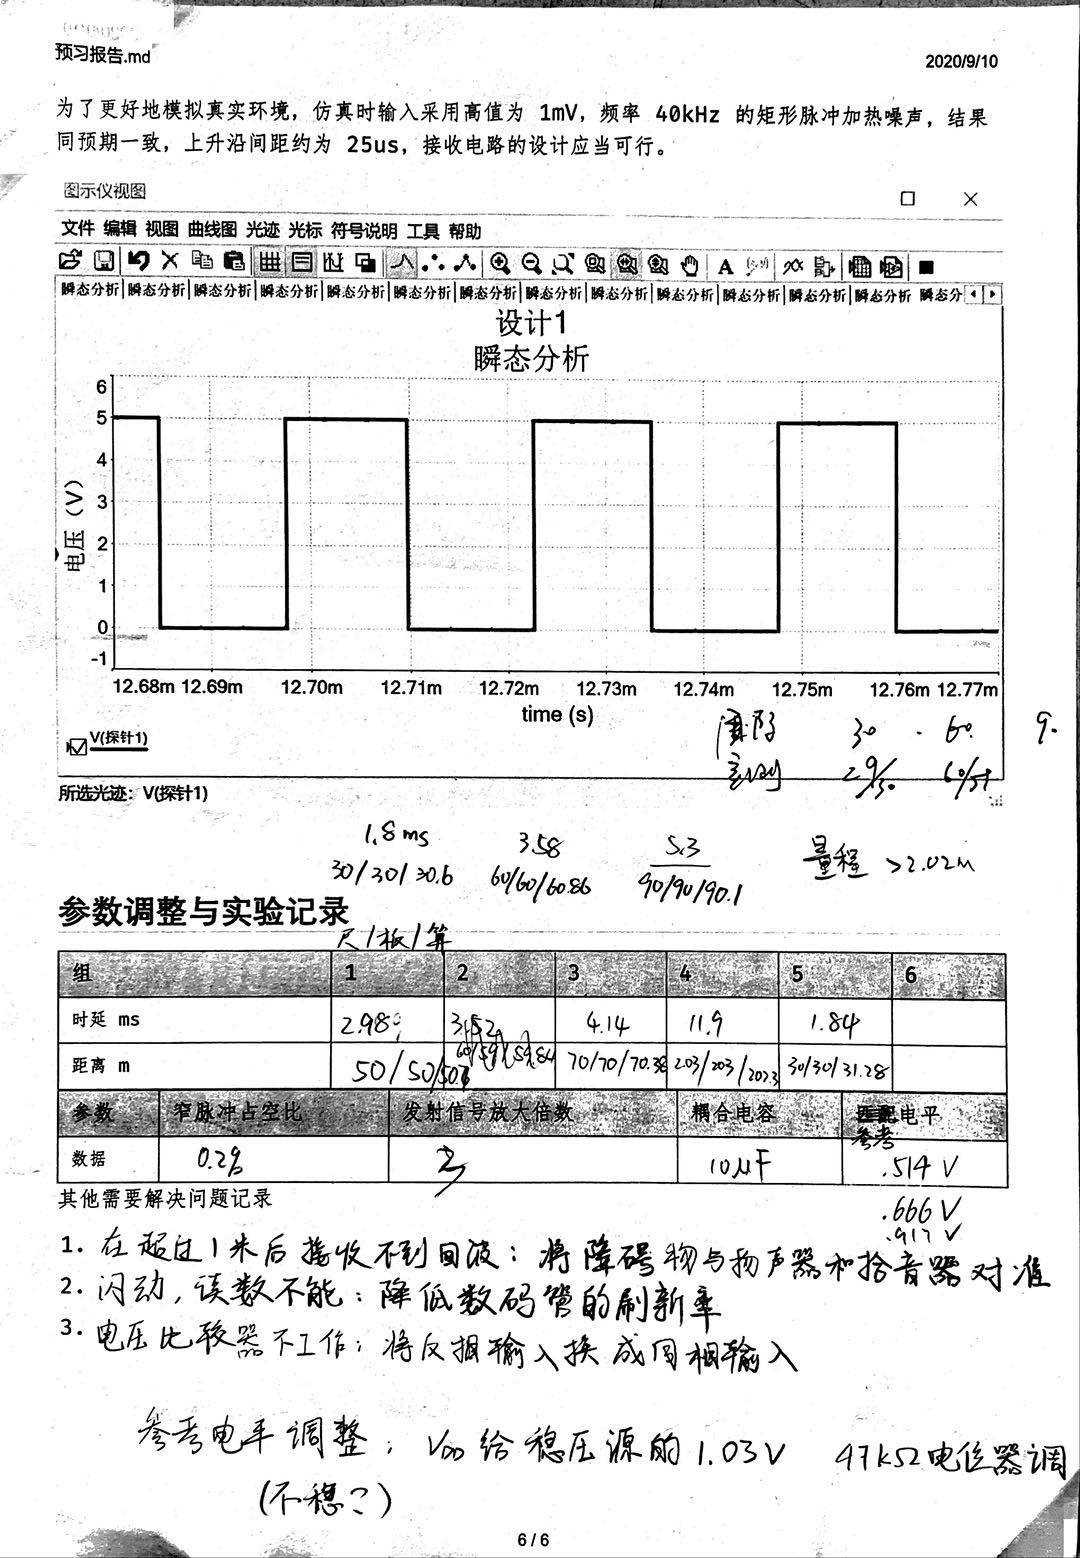 预习报告.md
2020/9/10
为了更好地模拟真实环境，仿真时输入采用高值为 1mV，频率 40kHz 的矩形脉冲加热噪声，结果
同预期一致，上升沿间距约为 25us，接收电路的设计应当可行。
图示仪视图
文件 编辑 视图 曲线图 光迹 光标 符号说明 工具 帮助
瞬态分析 瞬态分析 瞬态分析 瞬态分析 瞬态分析 瞬态分析 瞬态分析 瞬态分析 瞬态分析 瞬态分析 瞬态分析 瞬态分析 瞬态分析 瞬态分
设计1
瞬态分析
电压（V）
6
5
4
3
2
1
0
-1
12.68m 12.69m 12.70m 12.71m 12.72m 12.73m 12.74m 12.75m 12.76m 12.77m
time (s)
V(探针1)
实际 30 60 9.
29/30
所选光迹：V(探针1)
1.8ms 3.58 5.3
30/30/30.6 60/60/60.86 90/90/90.1
量程 >2.02m
参数调整与实验记录
尺/板/算
组 1 2 3 4 5 6
时延 ms 2.98 3.52 4.14 11.9 1.84
距离 m 50/50/50.6 60/59/59.84 70/70/70.38 203/203/202.3 30/30/31.28
参数 窄脉冲占空比 发射信号放大倍数 耦合电容 参考电平
数据 0.2% 10μF .514V
.666V
.917V
其他需要解决问题记录
1. 在超过1米后接收不到回波：将障碍物与扬声器和拾音器对准
2. 闪动，读数不能：降低数码管的刷新率
3. 电压比较器不工作：将反相输入换成同相输入
参考电平调整：VDD给稳压源的1.03V 47kΩ电位器调
(不稳?)
6 / 6